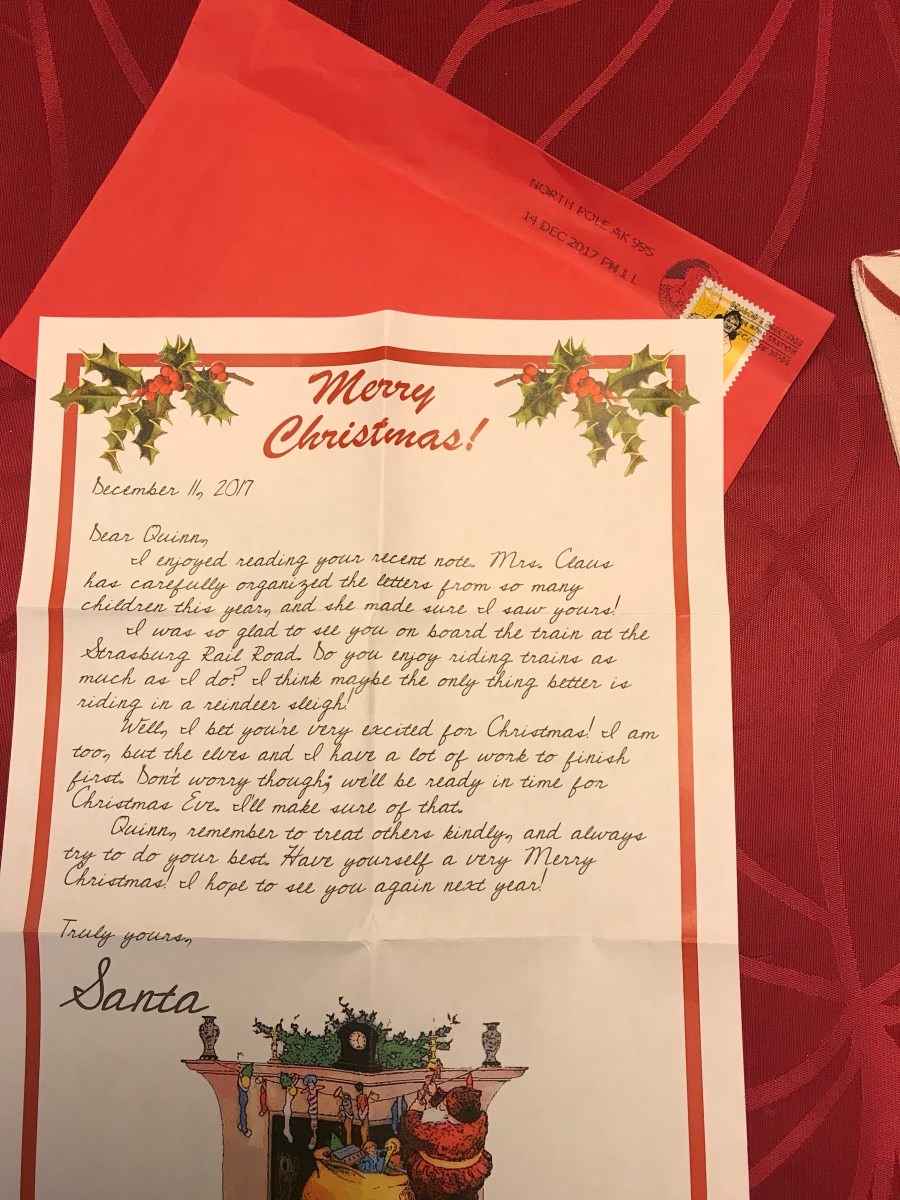 NORTH POLE AK 995
14 DEC 2017 PM 1 L
Merry
Christmas!
December 11, 2017
Dear Quinn,
I enjoyed reading your recent note. Mrs. Claus
has carefully organized the letters from so many
children this year, and she made sure I saw yours!
I was so glad to see you on board the train at the
Strasburg Rail Road. Do you enjoy riding trains as
much as I do? I think maybe the only thing better is
riding in a reindeer sleigh!
Well, I bet you're very excited for Christmas! I am
too, but the elves and I have a lot of work to finish
first. Don't worry though; we'll be ready in time for
Christmas Eve. I'll make sure of that.
Quinn, remember to treat others kindly, and always
try to do your best. Have yourself a very Merry
Christmas! I hope to see you again next year!
Truly yours,
Santa